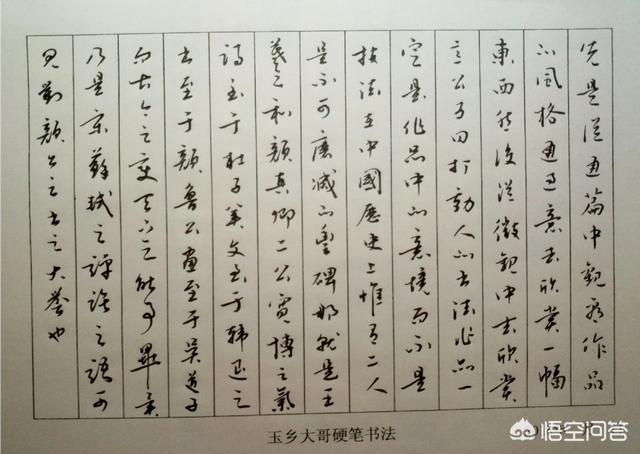 先是從通篇中觀看作品
的風格通過意去欣賞一幅
東西然後從微觀中去欣賞
打動人的书法作品一
定是作品中的意境而不是
技法在中國歷史上惟有二人
是不可磨滅的豐碑那就是王
羲之和顏真卿二公博之氣
詩至于杜子美文至于韓退之
书至于顏魯公畫至于吳道子
而古今之变天下之能事畢矣
乃是宋蘇軾之評之語可
見對顏公之书之大誉也
玉乡大哥硬笔书法
悟空问答